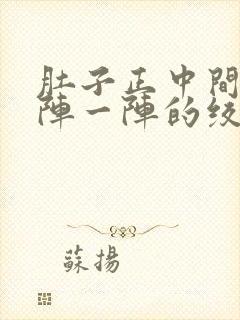 肚子正中間
陣一陣的
蘇揚